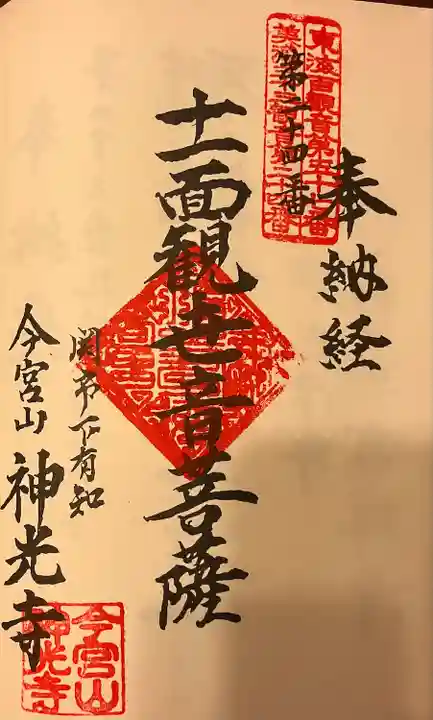 奉納経
東海百観音第五十七番
美濃三十三観音第二十四番
第二十四番
十一面観世音菩薩
関市下有知
今宮山 神光寺
今宮山
神光寺